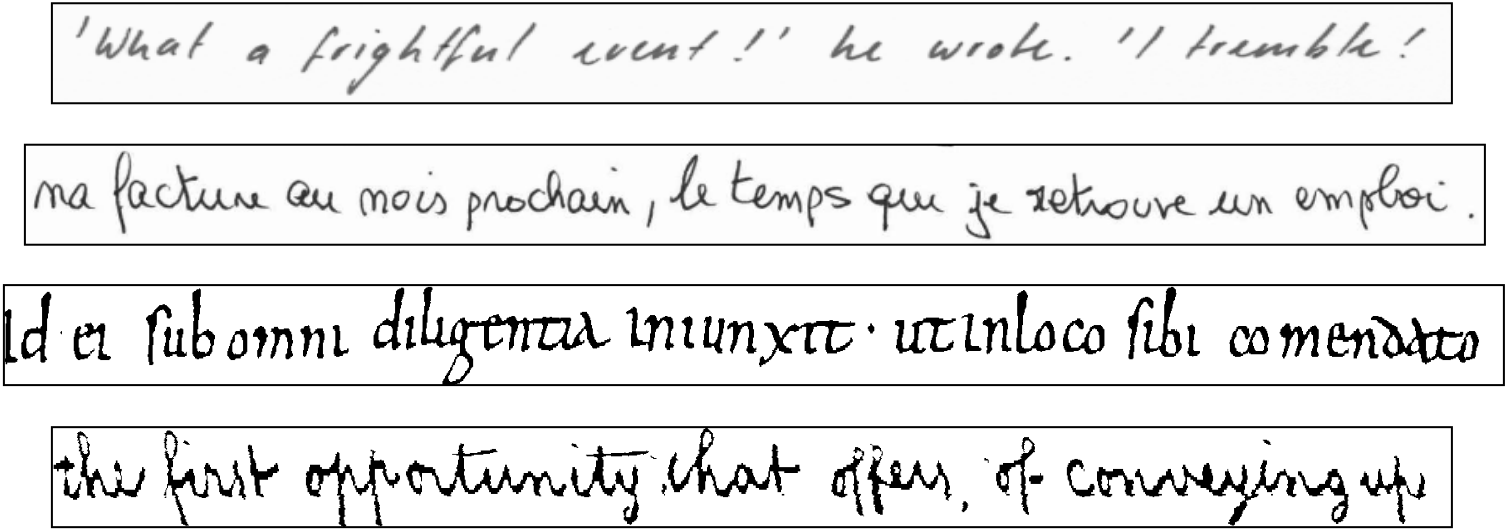 'What a frightful event!' he wrote. 'I tremble!
ma facture au mois prochain, le temps que je retrouve un emploi.
id ei sub omni diligentia iniunxit · ut in loco sibi comendato
the first opportunity that offers, of conveying up